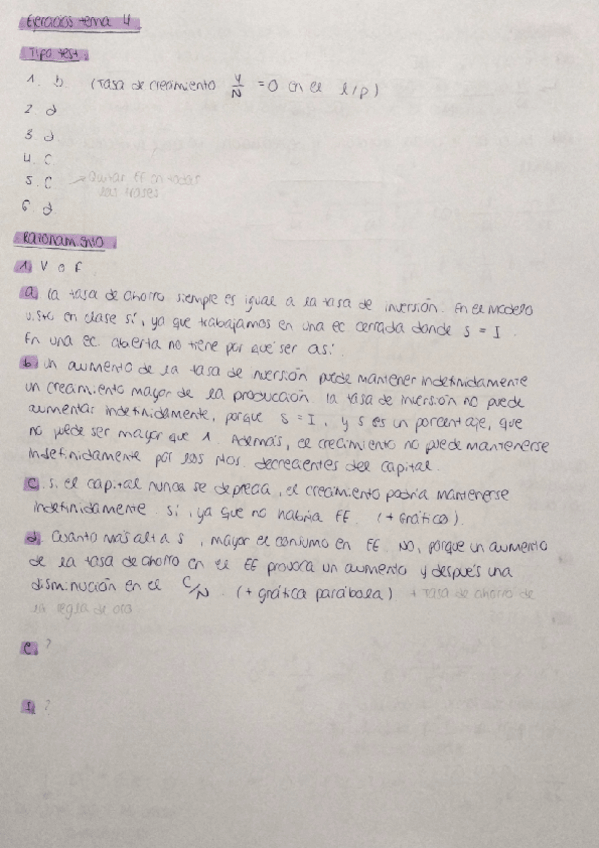 Ejercicios tema 4
Tipo test.
1. b (Tasa de crecimiento Y/N = 0 en el l/p)
2. d
3. d
4. C
5. C → Quitar EE en todas
las frases
6. d
Razonamiento.
1) V o F
a) La tasa de ahorro siempre es igual a la tasa de inversión. En el modelo
visto en clase sí, ya que trabajamos en una ec cerrada donde S = I.
En una ec. abierta no tiene por qué ser así.
b) Un aumento de la tasa de inversión puede mantener indefinidamente
un crecimiento mayor de la producción. La tasa de inversión no puede
aumentar indefinidamente, porque s = I, y s es un porcentaje, que
no puede ser mayor que 1. Además, el crecimiento no puede mantenerse
indefinidamente por los rtos. decrecientes del capital.
c) Si el capital nunca se deprecia, el crecimiento podría mantenerse
indefinidamente. Sí, ya que no habría EE. (+ Gráfico).
d) Cuanto más alta s, mayor el consumo en EE. No, porque un aumento
de la tasa de ahorro en el EE provoca un aumento y después una
disminución en el C/N. (+ gráfica parábola) + Tasa de ahorro de
la regla de oro
e. ?
f. ?